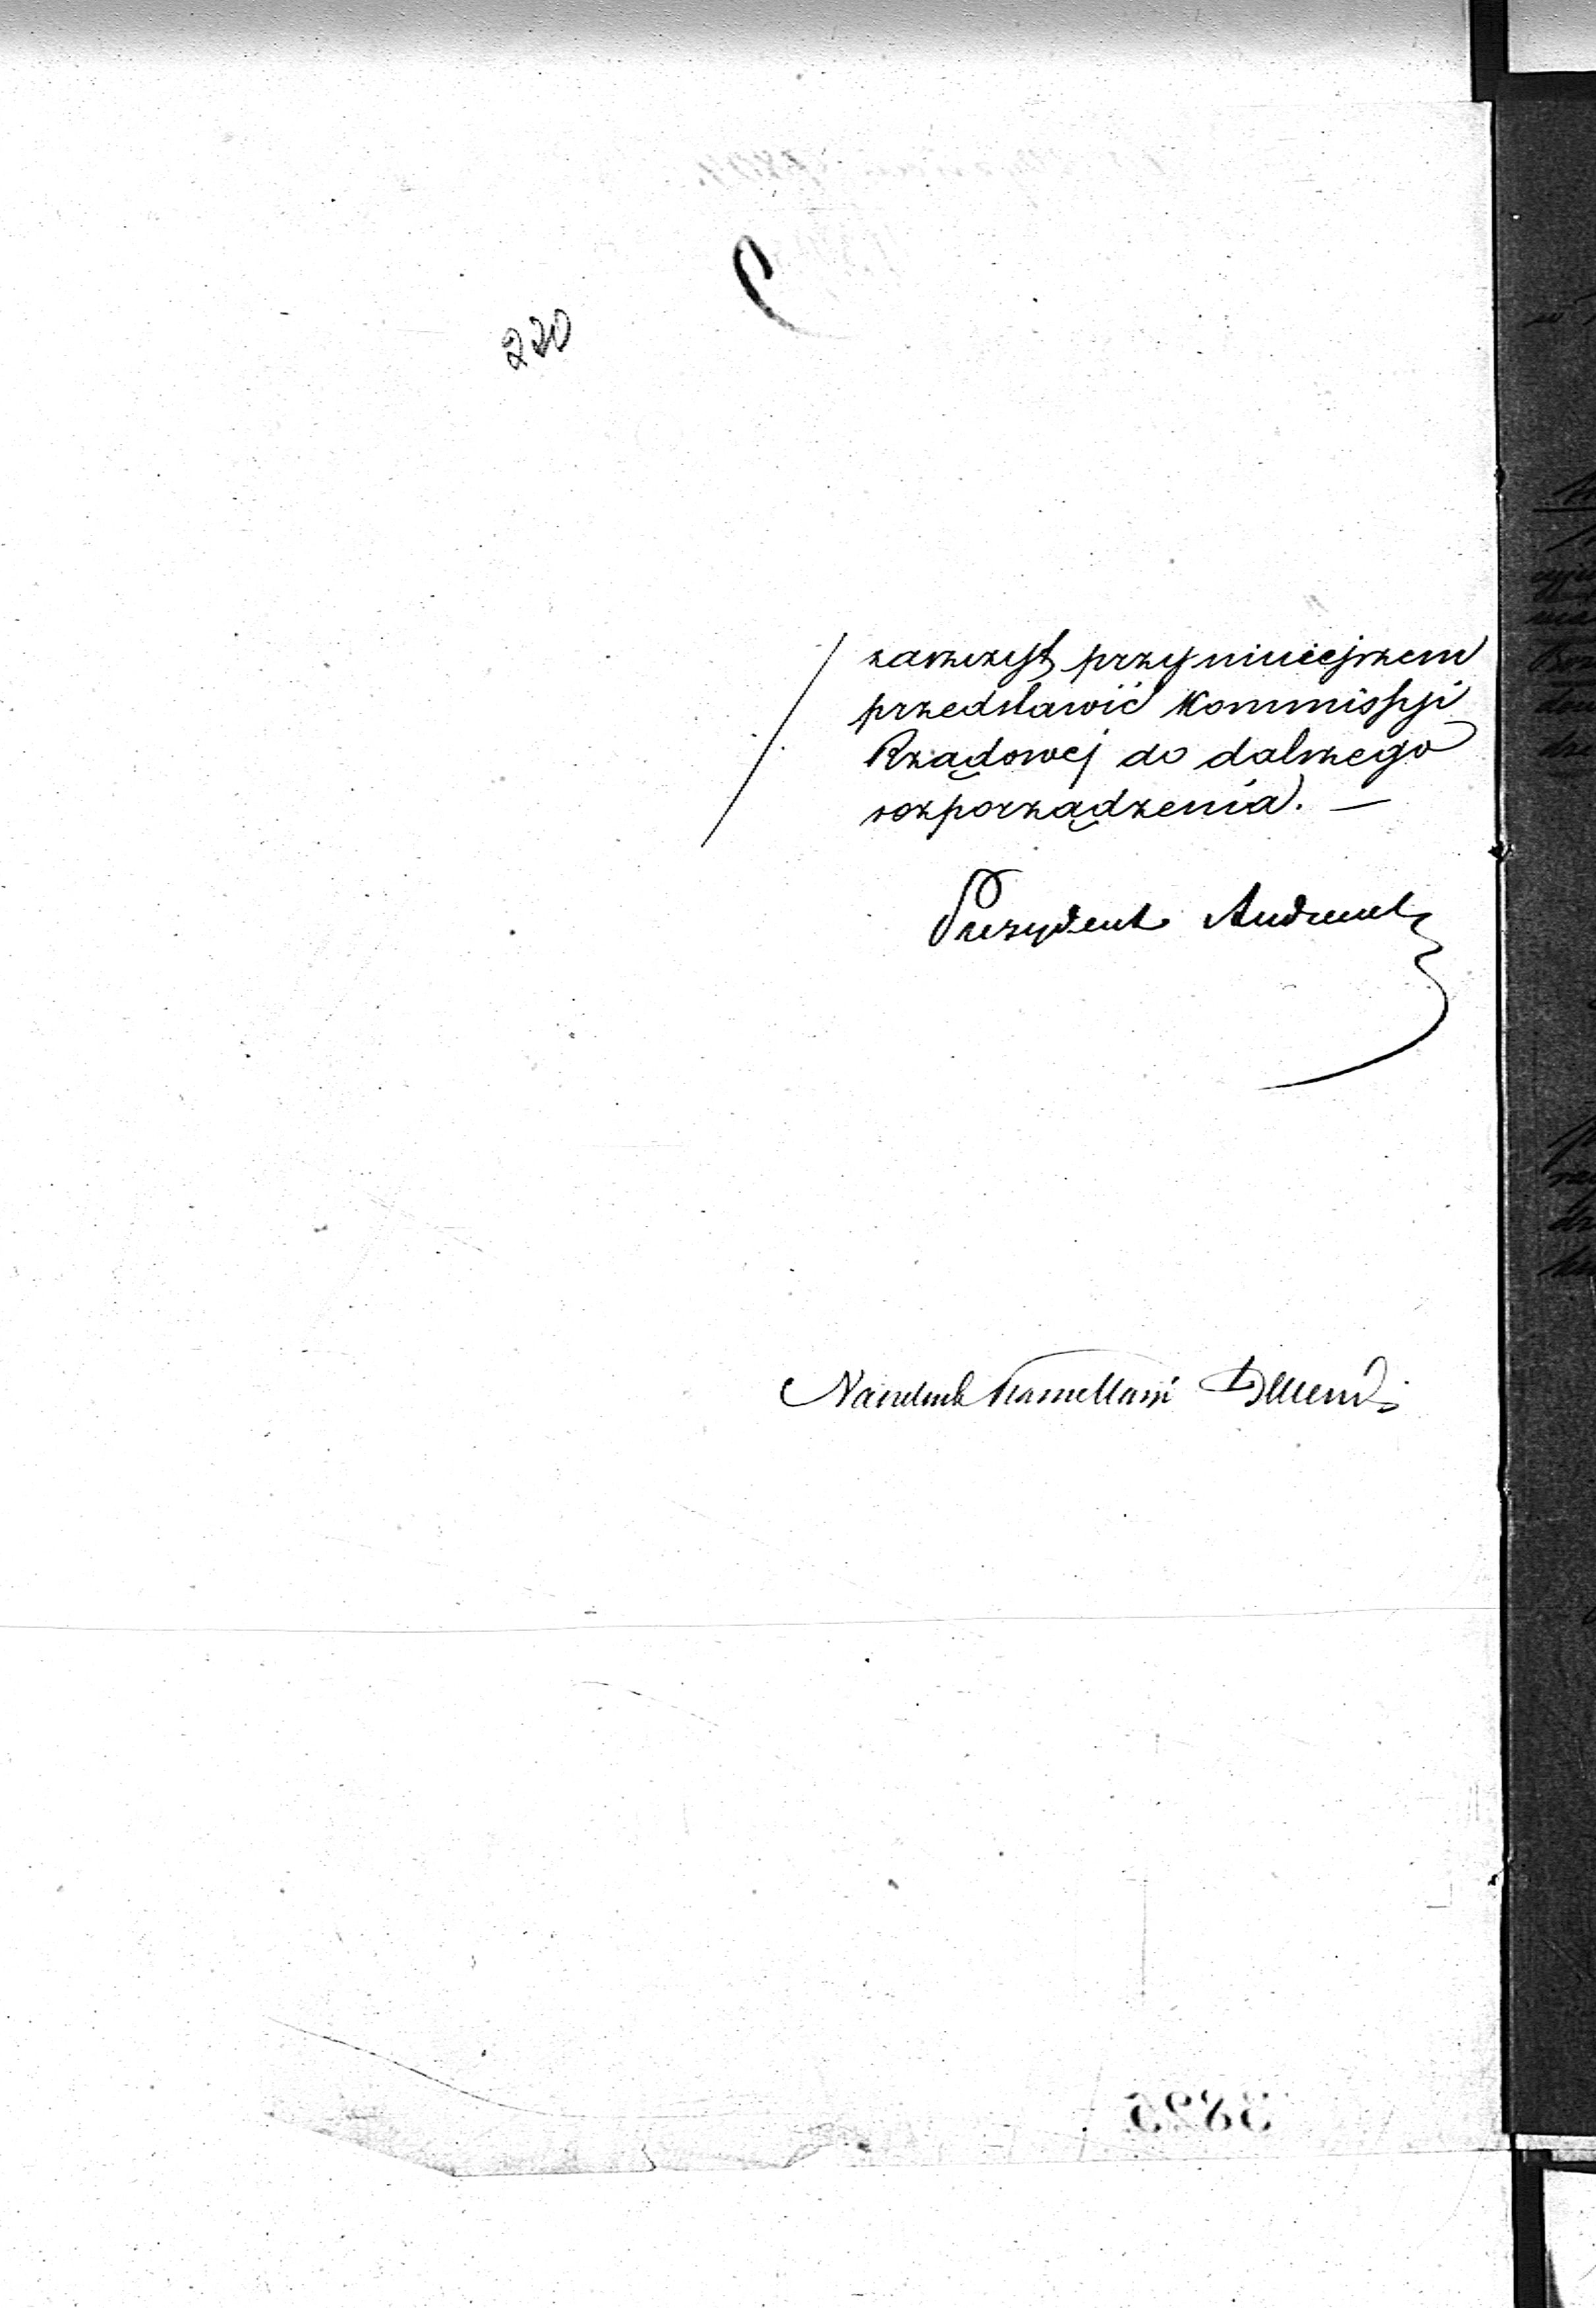 220
zaszczyt przy niniejszem
przedstawić Kommissyi
Rządowej do dalszego
rozporządzenia. —
Prezydent Andrault
Naczelnik Kancellaryi